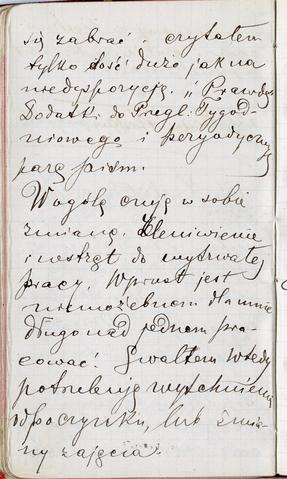 się zabrać. czytałem
tylko dość dużo jak na
niedyspozycję. "Prawdę,
Dodatki do Przegl. Tygod-
niowego i peryodyczny
parę pism.
Wogóle czuję w sobie
zmianę. Zleniwienie
i wstręt do wytrwałej
pracy. Wprost jest
niemożebnem dla mnie
długo nad jednem pra-
cować. Gwałtem wtedy
potrzebuję wytchnienia
odpoczynku, lub zmia-
ny zajęcia.